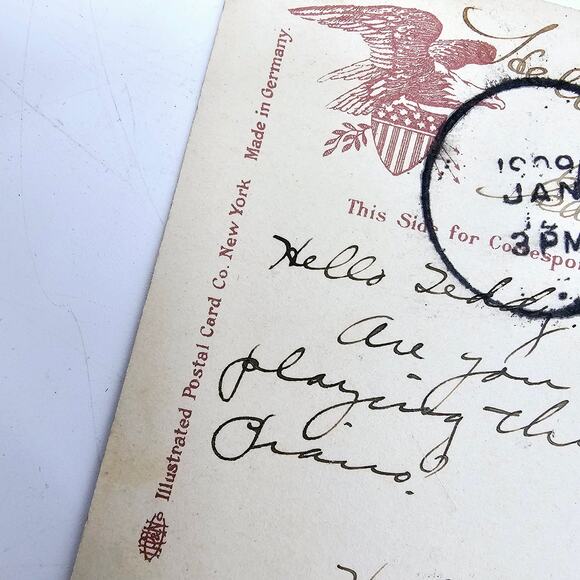 Illustrated Postal Card Co. New York Made in Germany.
1909
JAN
3 PM
This Side for Correspon
Hello Teddy.
Are you
playing the
Piano?